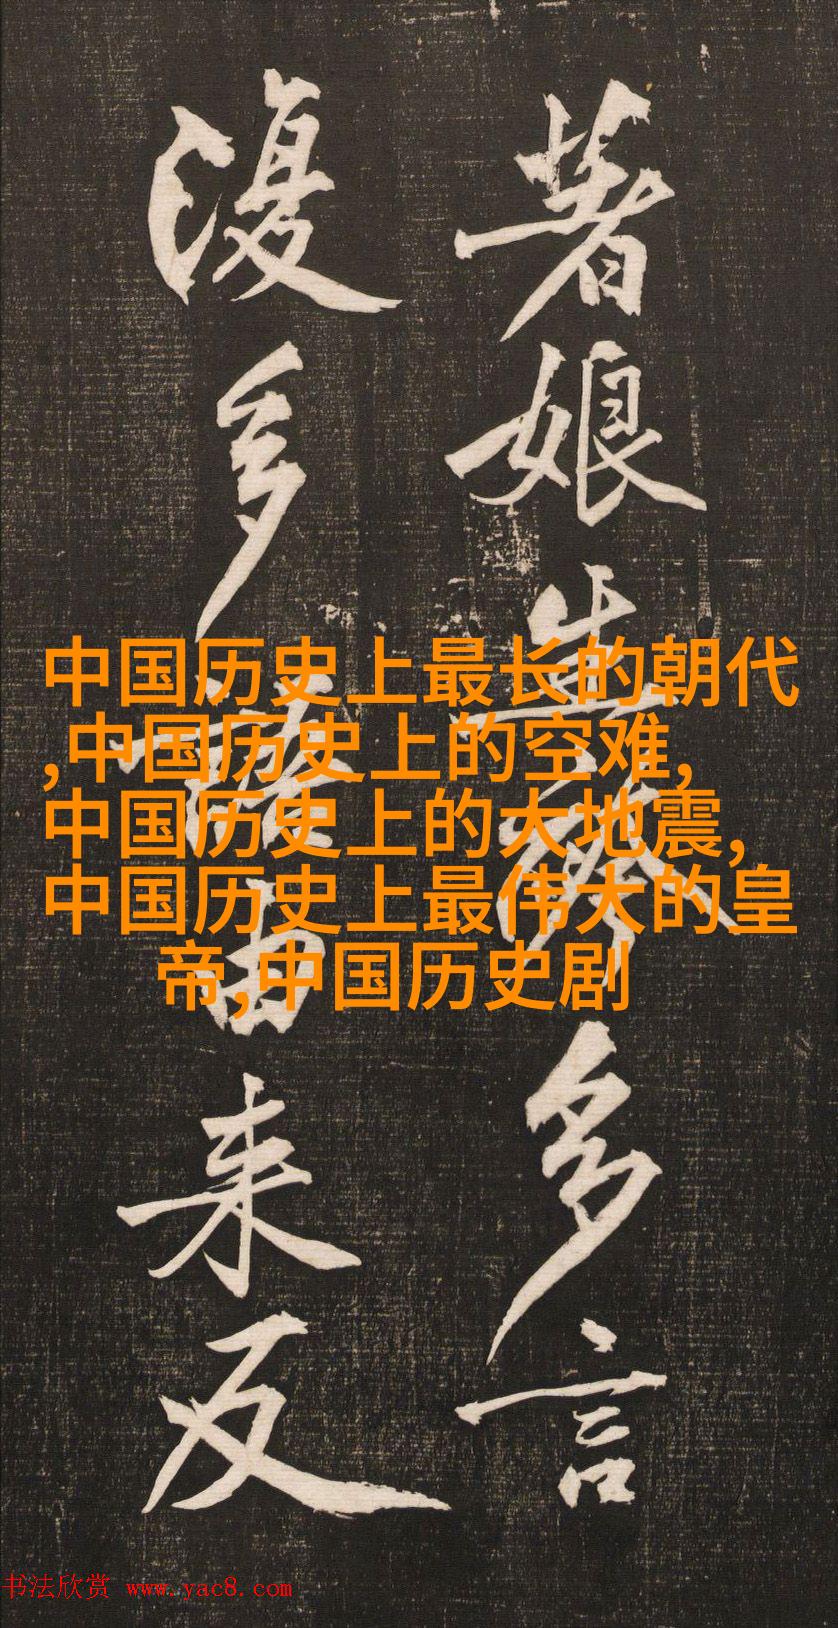 著娘多言
復多由来反
中国历史上最长的朝代
,中国历史上的空难,
中国历史上的大地震,
中国历史上最伟大的皇
帝,中国历史剧
书法欣赏 www.yac8.com